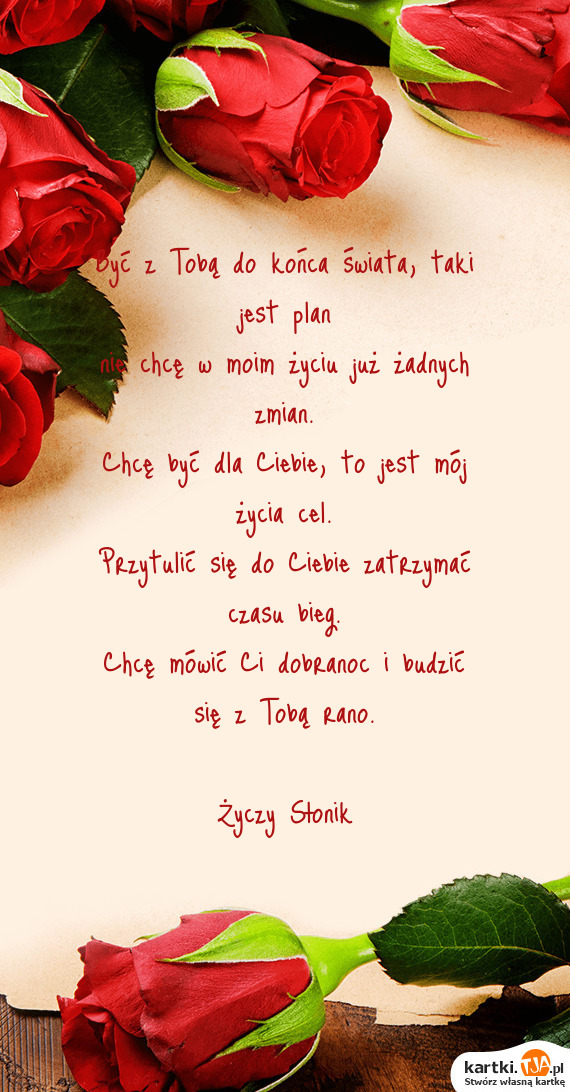 Być z Tobą do końca świata, taki
jest plan
nie chcę w moim życiu już żadnych
zmian.
Chcę być dla Ciebie, to jest mój
życia cel.
Przytulić się do Ciebie zatrzymać
czasu bieg.
Chcę mówić Ci dobranoc i budzić
się z Tobą rano.
Życzy Słonik
kartki.TJA.pl
Stwórz własną kartkę